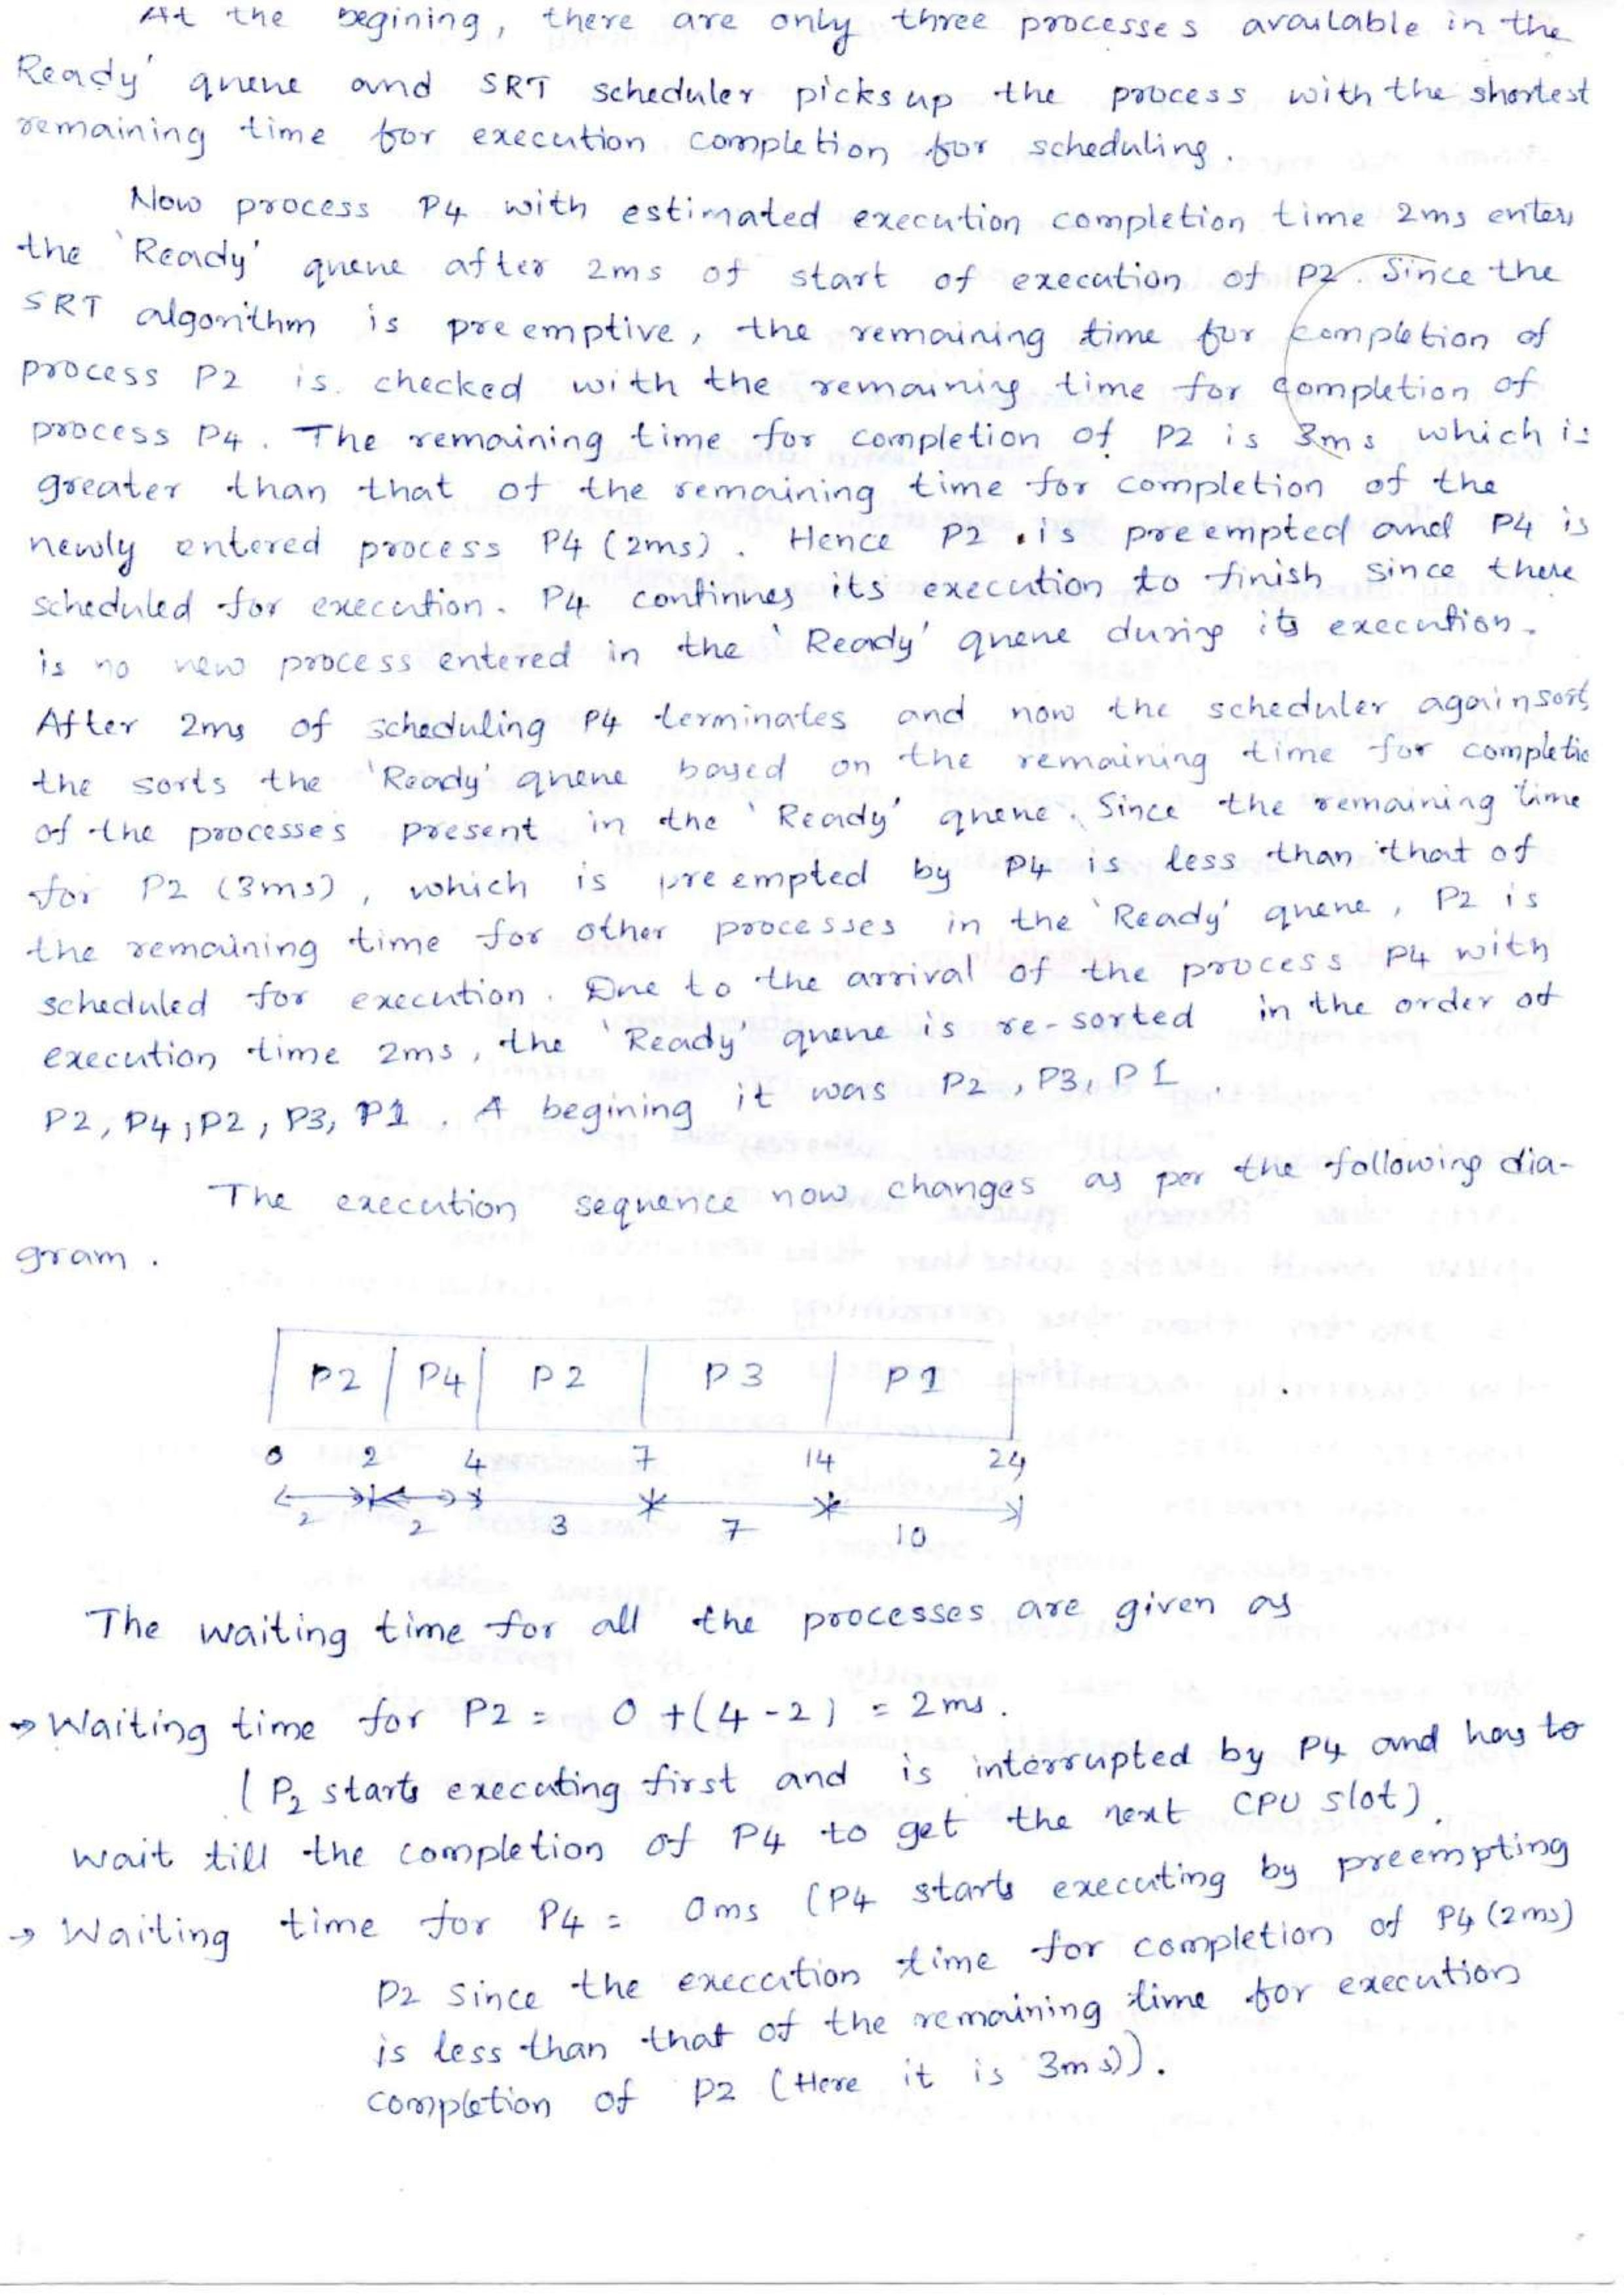 At the begining, there are only three processes available in the
Ready' queue and SRT scheduler picks up the process with the shortest
remaining time for execution completion for scheduling.
Now process P4 with estimated execution completion time 2ms enters
the 'Ready' queue after 2ms of start of execution of P2. Since the
SRT algorithm is preemptive, the remaining time for completion of
process P2 is checked with the remaining time for completion of
process P4. The remaining time for completion of P2 is 3ms which is
greater than that of the remaining time for completion of the
newly entered process P4 (2ms). Hence P2 is preempted and P4 is
scheduled for execution. P4 continues its execution to finish since there
is no new process entered in the 'Ready' queue during its execution.
After 2ms of scheduling P4 terminates and now the scheduler again sorts
the sorts the 'Ready' queue based on the remaining time for completio
of the processes present in the 'Ready' queue. Since the remaining time
for P2 (3ms), which is preempted by P4 is less than that of
the remaining time for other processes in the 'Ready' queue, P2 is
scheduled for execution. Due to the arrival of the process P4 with
execution time 2ms, the 'Ready' queue is re-sorted in the order of
P2, P4, P2, P3, P1. A begining it was P2, P3, P1.
The execution sequence now changes as per the following dia-
gram.
P2 P4 P2 P3 P1
0 2 4 7 14 24
2 2 3 7 10
The waiting time for all the processes are given as
→ Waiting time for P2 = 0 + (4-2) = 2ms.
(P2 starts executing first and is interrupted by P4 and has to
wait till the completion of P4 to get the next CPU slot).
→ Waiting time for P4 = 0ms (P4 starts executing by preempting
P2 since the execution time for completion of P4 (2ms)
is less than that of the remaining time for execution
completion of P2 (Here it is 3ms)).